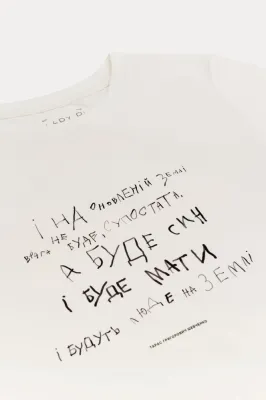 І НА ОНОВЛЕНІЙ ЗЕМЛІ
ВРАГА НЕ БУДЕ, СУПОСТАТА,
А БУДЕ СИН
І БУДЕ МАТИ
І БУДУТЬ ЛЮДЕ НА ЗЕМЛІ
ТАРАС ГРИГОРОВИЧ ШЕВЧЕНКО